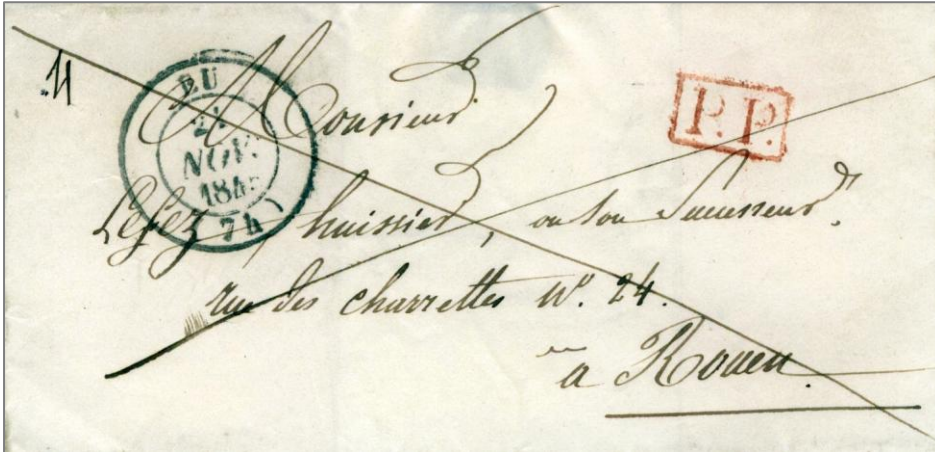 EU
NOV.
(74)
P.P.
Monsieur
huissier, ou son Successeur.
rue des charrettes N°. 24.
à Rouen.